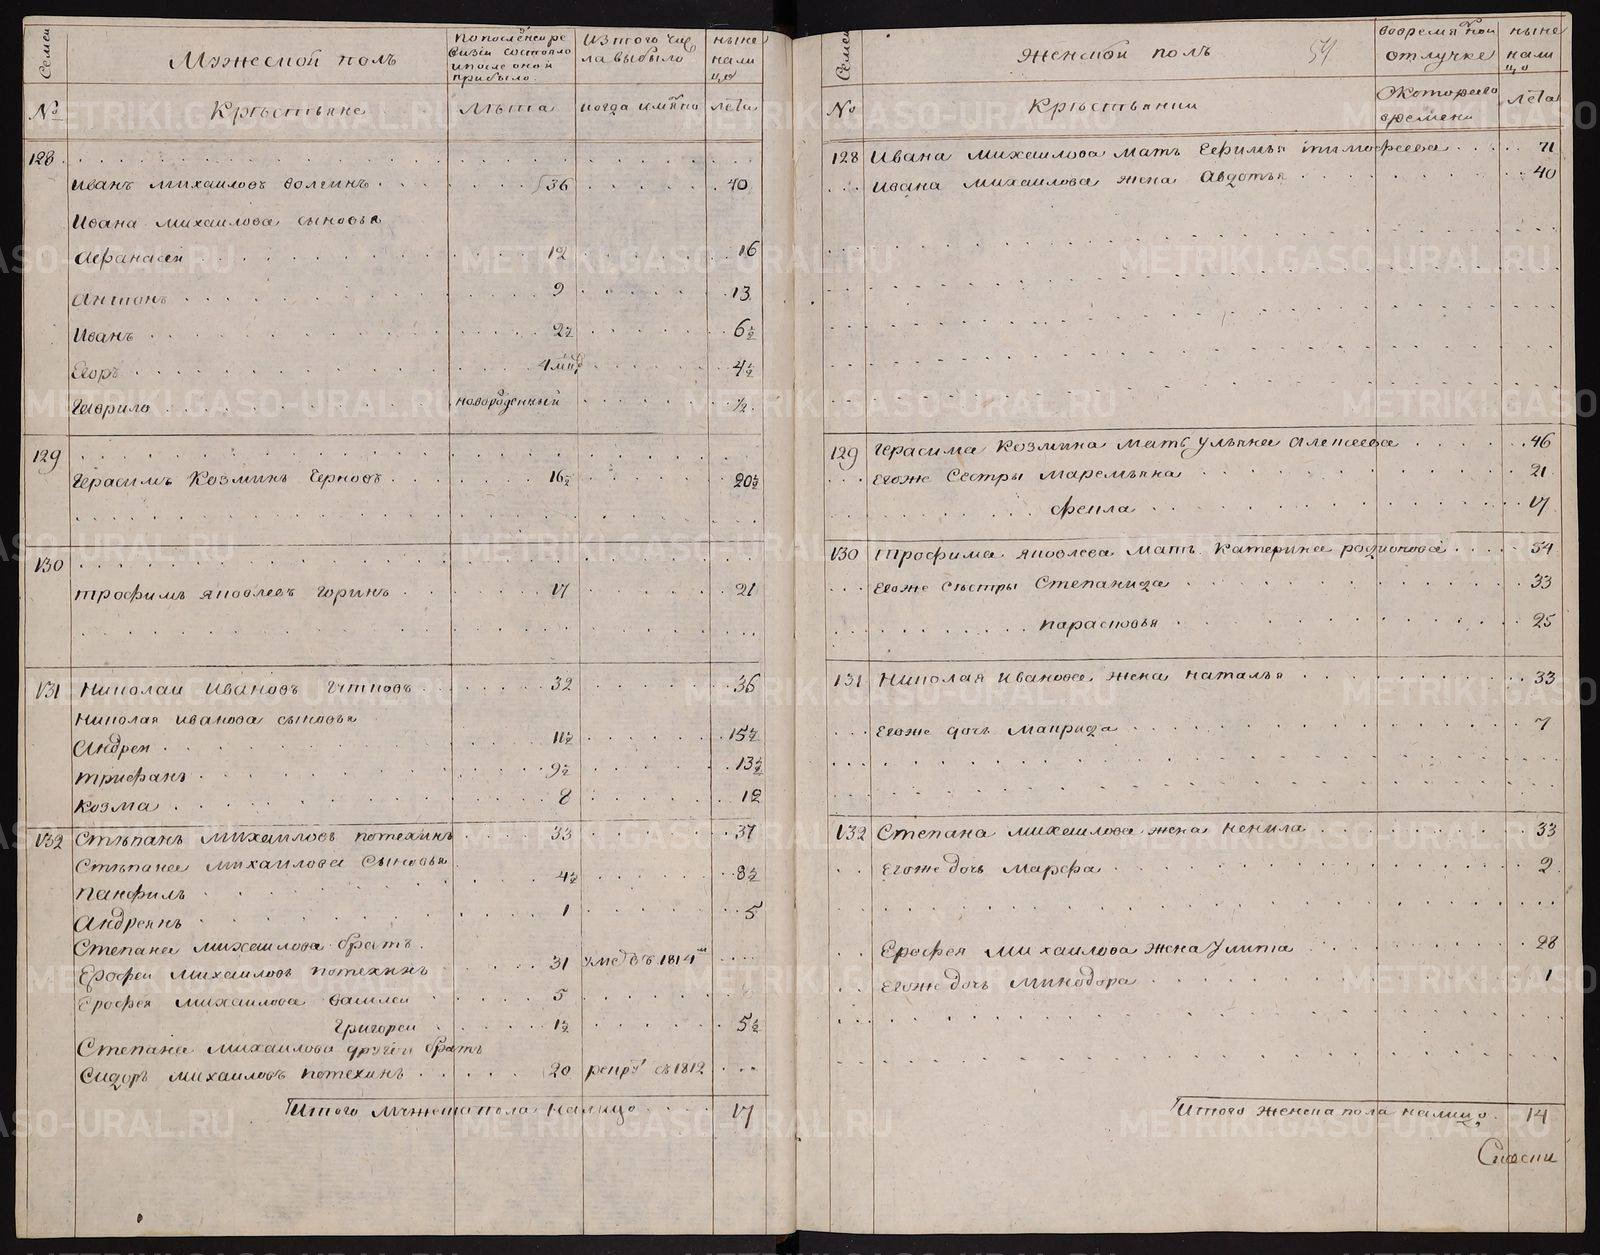 Семеи
Мужескои полъ
По последнеи ре
визiи состояло
и после онои
прибыло.
Из того чис
ла выбыло
ныне
нали
цо
№
Крѣстьяне
Лѣта
когда имяно
лета
128
Иванъ Михаиловъ Волгинъ 36 40
Ивана Михаилова сыновья
Афанасеи 12 16
Антонъ 9 13
Иванъ 2½ 6½
Егоръ 4½
Гаврило новорожденныи ½
129
Герасимъ Козминъ Черновъ 16½ 20½
130
Трофимъ Яковлевъ Горинъ 17 21
131 Николаи Ивановъ 32 36
Николая Иванова сыновья
Андреи 11½ 15½
Трифанъ 9½ 13½
Козма 8 12
132 Стѣпанъ Михаиловъ Потехинъ 33 37
Стѣпана Михаилова Сыновья
Панфилъ 4½ 8½
Андреянъ 1 5
Степана Михаилова братъ
Ерофеи Михаиловъ Потехинъ 31 умеръ въ 1814м
Ерофея Михаилова Василеи 5
Григореи 1½ 5½
Степана Михаилова другои братъ
Сидоръ Михаиловъ Потехинъ 20 рекрут въ 1812
Итого мужеска пола налицо 17
Семеи
Женскои полъ
54
во времянои
отлучке
ныне
нали
цо
№
Крѣстьянки
С которого
времени
лета
128 Ивана Михаилова мать Ефимья Тимофеева 71
Ивана Михаилова жена Авдотья 40
129 Герасима Козмина мать Ульяна Алексеева 46
Егоже Сестры Маремьяна 21
Фекла 17
130 Трофима Яковлева мать Катерина Родионова 54
Егоже сѣстры Степанида 33
Парасковья 25
131 Николая Иванова жена Наталья 33
Егоже дочь Маврида 7
132 Степана Михаилова жена Ненила 33
Егоже дочь Марфа 2
Ерофея Михаилова жена Улита 28
Егоже дочь Минодора 1
Итого женска пола налицо 14
METRIKI.GASO-URAL.RU